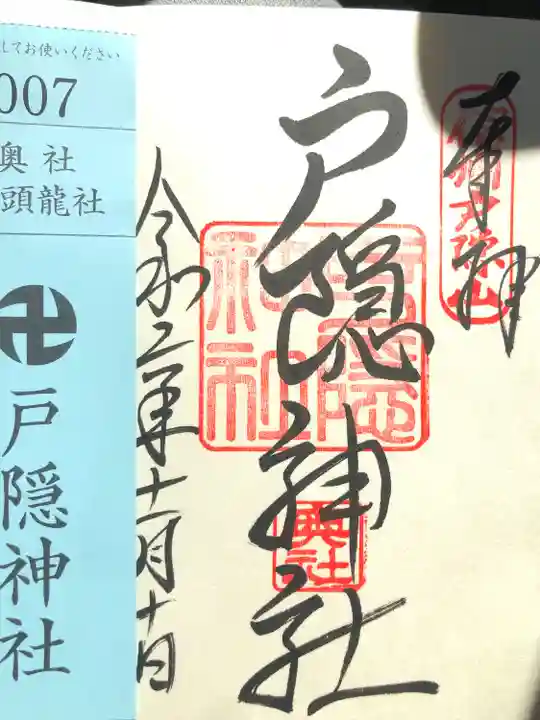 奉拝
戸隠神社
戸隠神社
奥社
令和二年十一月十日
してお使いください
007
奥社
頭龍社
卍
戸隠神社